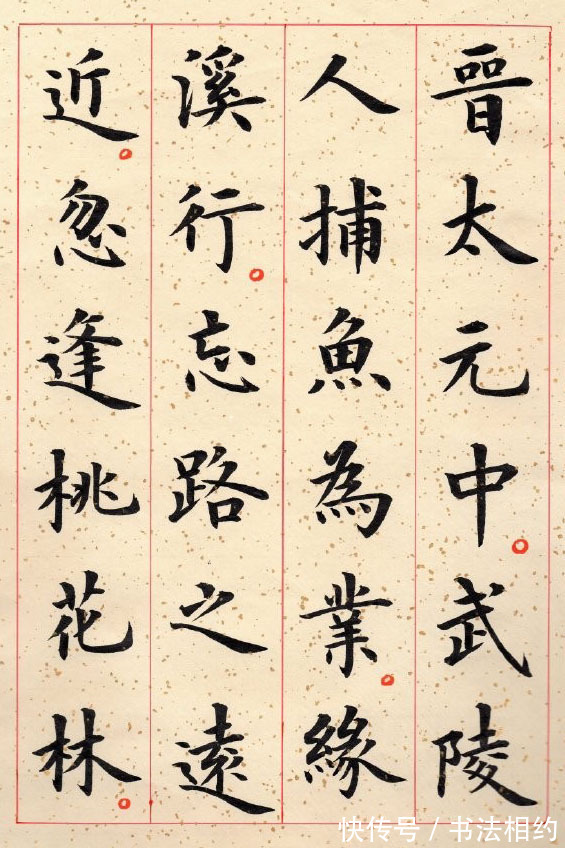 晉太元中。武陵
人捕魚為業。緣
溪行。忘路之遠
近。忽逢桃花林。
快传号/书法相约